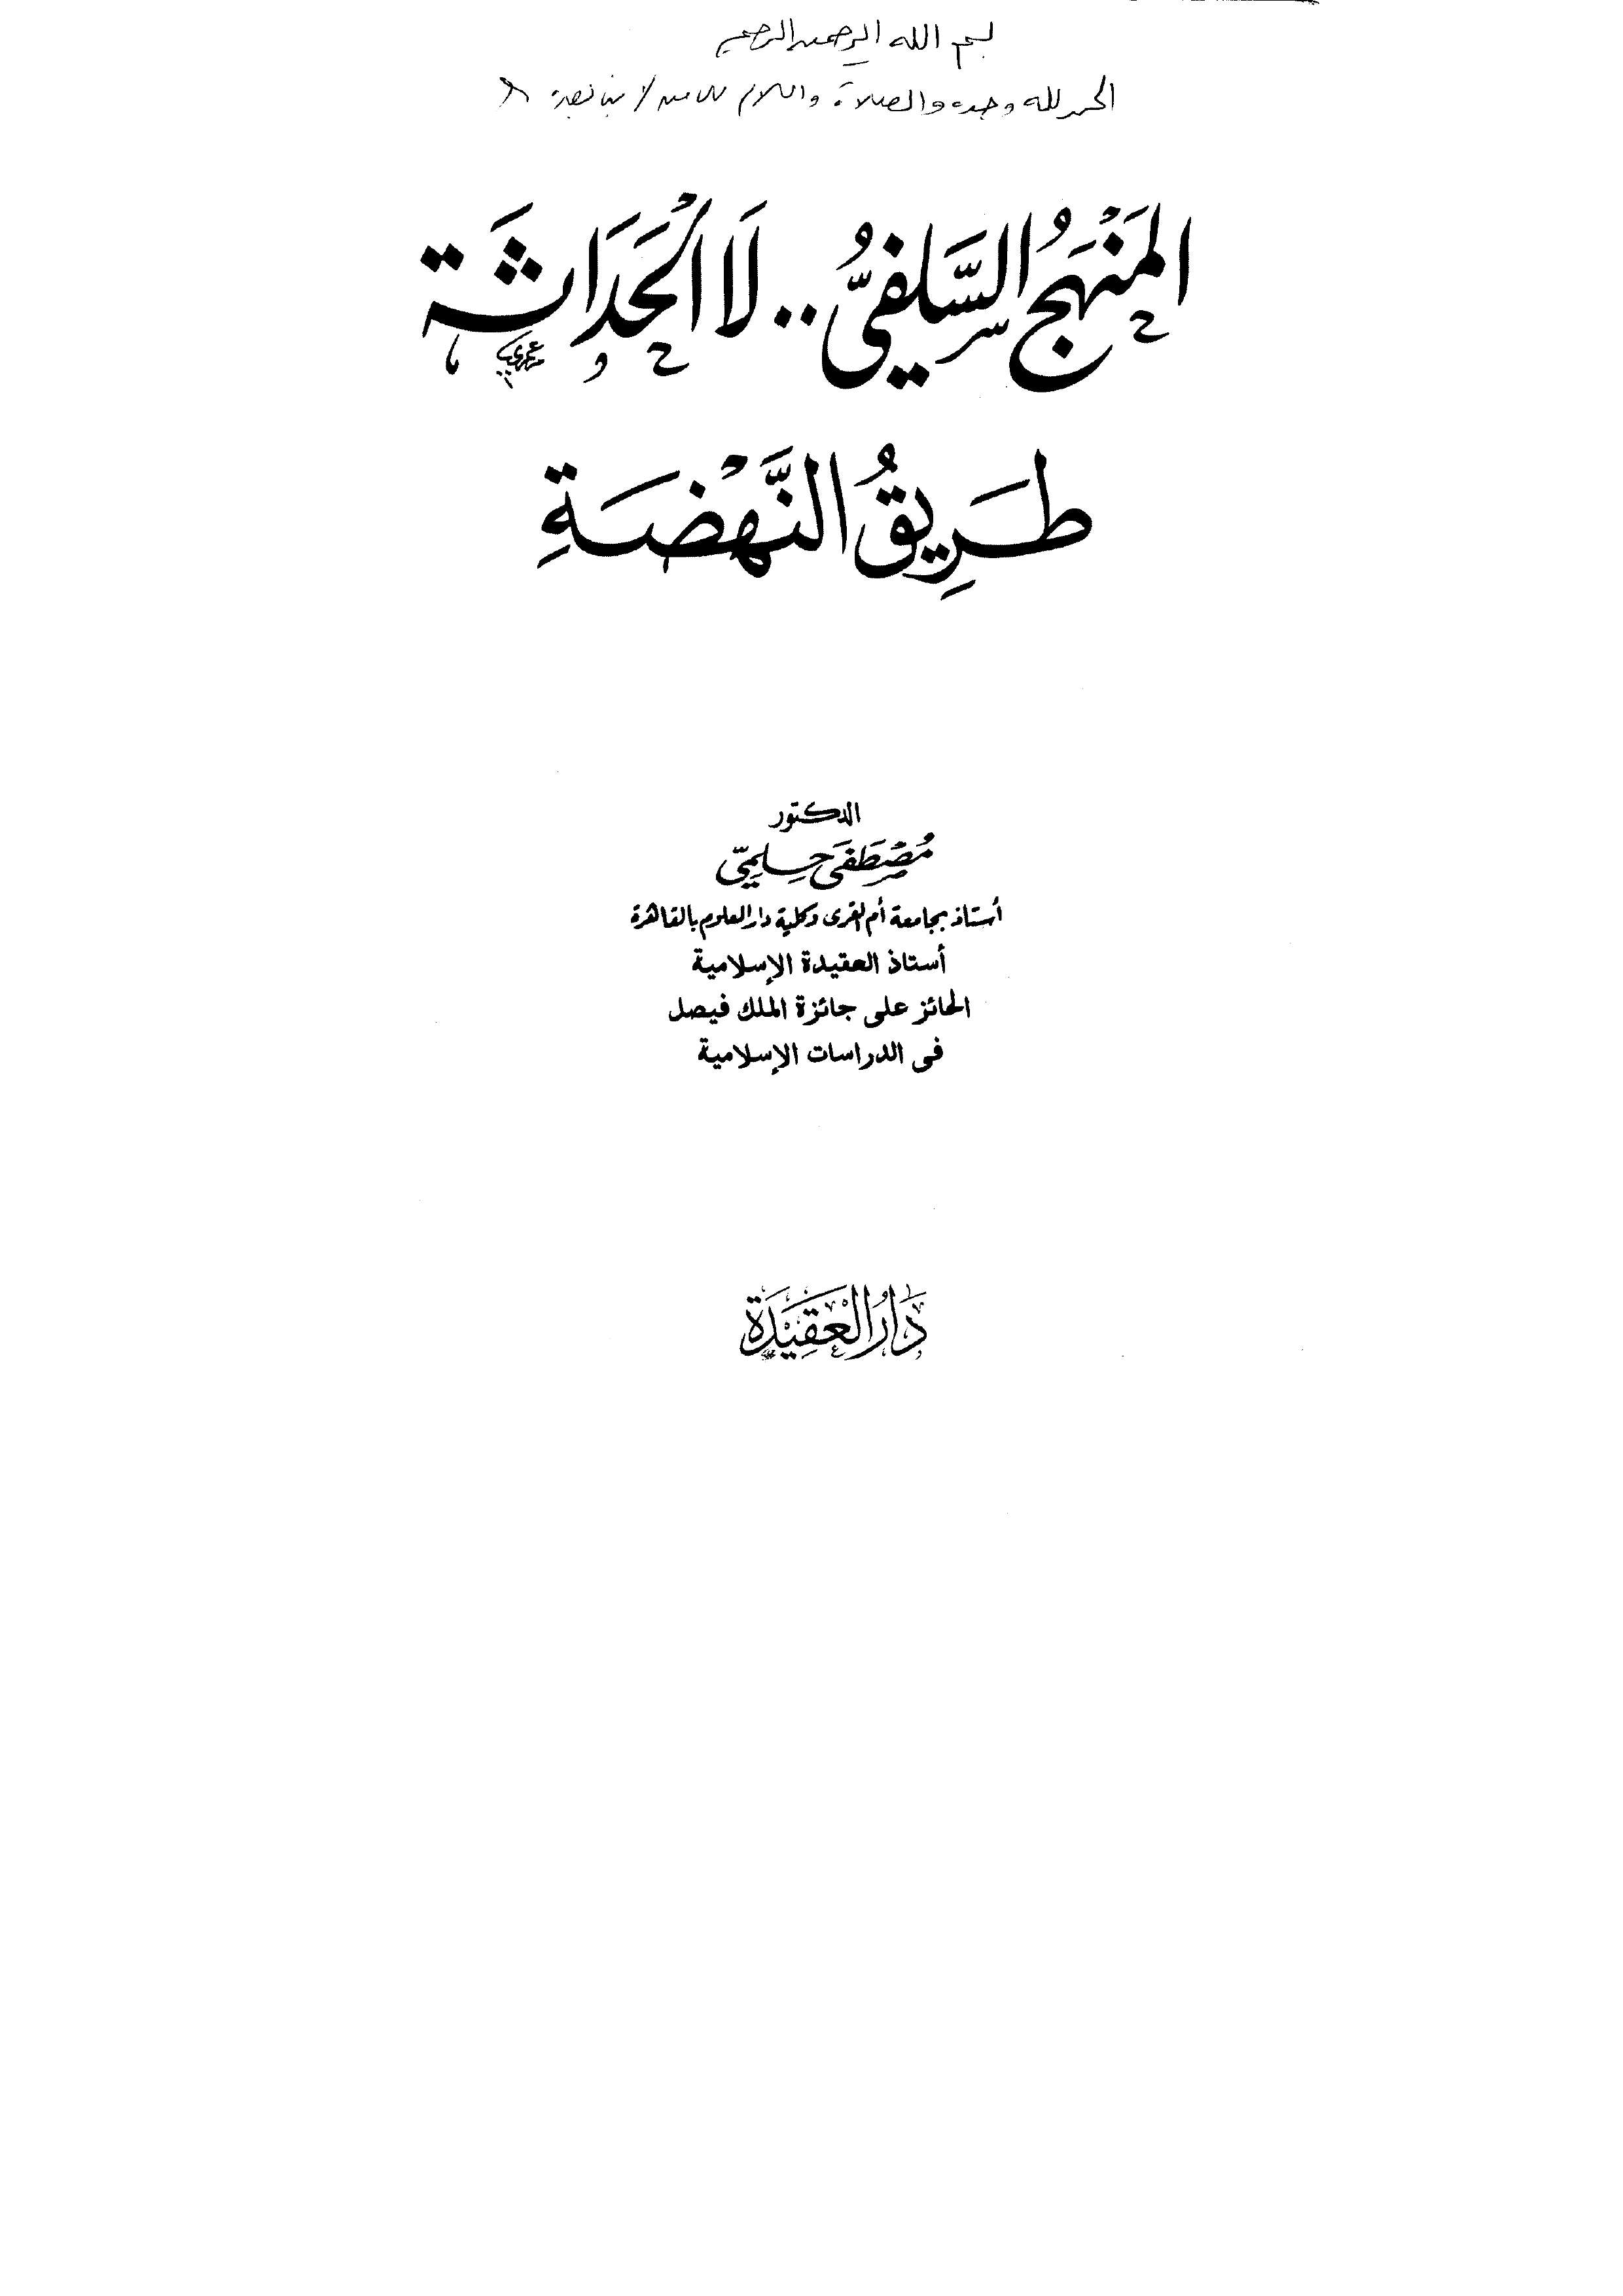 بسم الله الرحمن الرحيم
الحمد لله وحده والصلاة والسلام على من لا نبي بعده
المَنْهَجُ السَّلَفيُّ .. لَا الْحَدَاثَة
طَرِيقُ النَّهْضَةِ
الدكتور
مُصْطَفَى حِلمِيّ
أستاذ بجامعة أم القرى وكلية دار العلوم بالقاهرة
أستاذ العقيدة الإسلامية
الحائز على جائزة الملك فيصل
فى الدراسات الإسلامية
دَارُ الْعَقِيْدَة